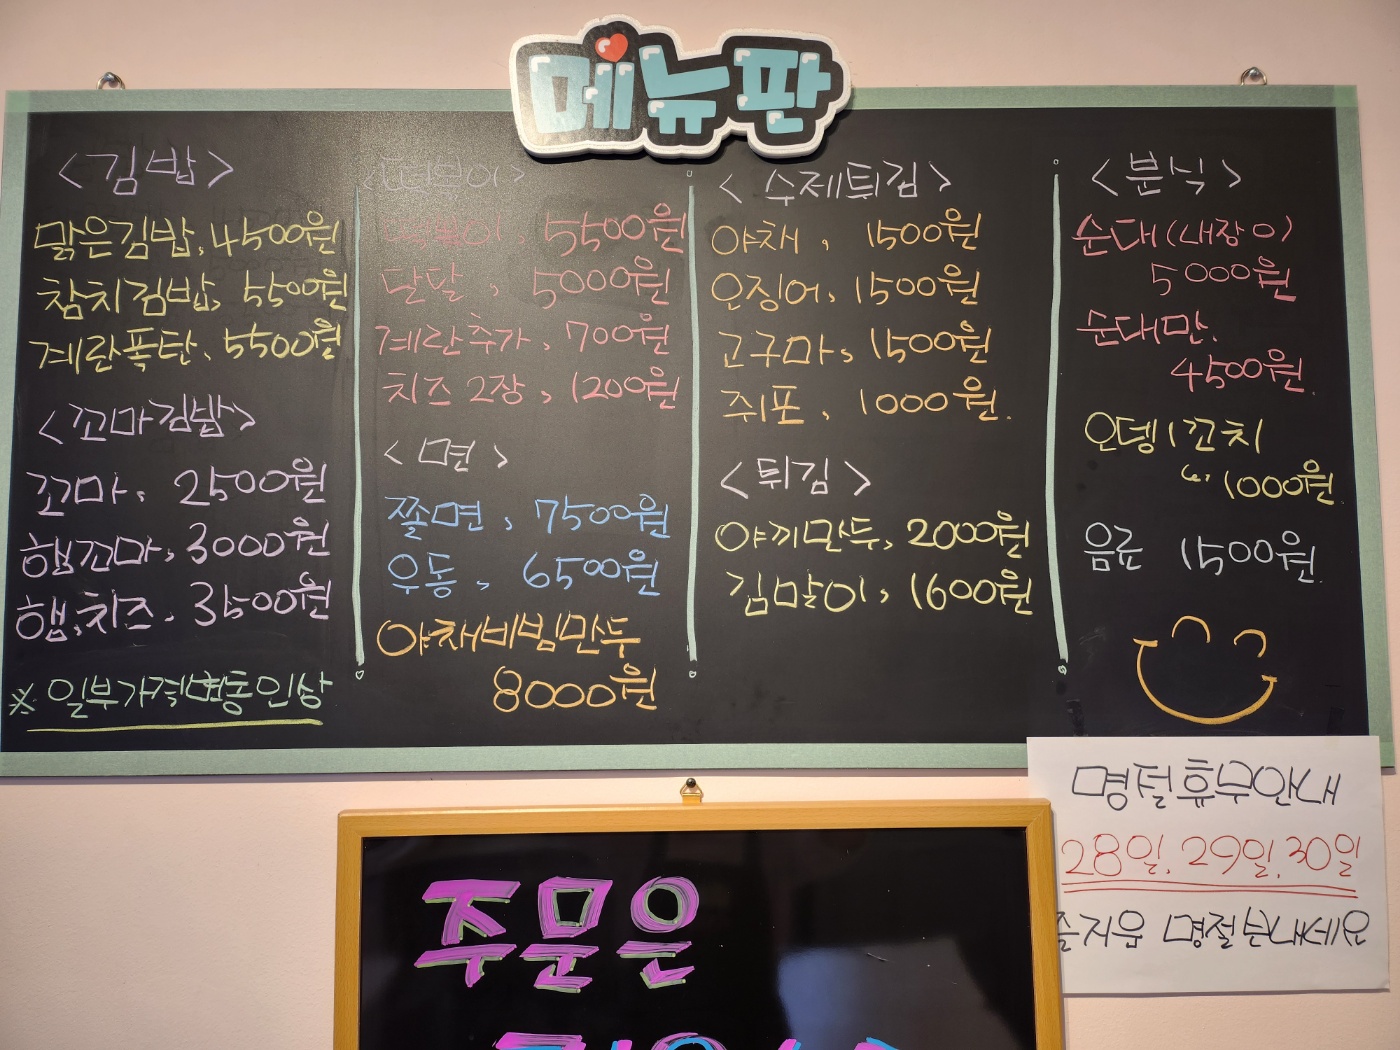 메뉴판
<김밥>
맑은김밥, 4500원
참치김밥, 5500원
계란폭탄, 5500원
<꼬마김밥>
꼬마, 2500원
햄꼬마, 3000원
햄,치즈, 3500원
※ 일부가격변동인상
<떡볶이>
떡볶이, 5500원
달달, 5000원
계란추가, 700원
치즈 2장, 1200원
<면>
쫄면, 7500원
우동, 6500원
야채비빔만두
8000원
<수제튀김>
야채, 1500원
오징어, 1500원
고구마, 1500원
쥐포, 1000원.
<튀김>
야끼만두, 2000원
김말이, 1600원
<분식>
순대(내장 0)
5000원
순대만.
4500원.
오뎅 1꼬치
1000원.
음료 1500원.
명절휴무안내
28일, 29일, 30일
즐거운 명절보내세요
주문은